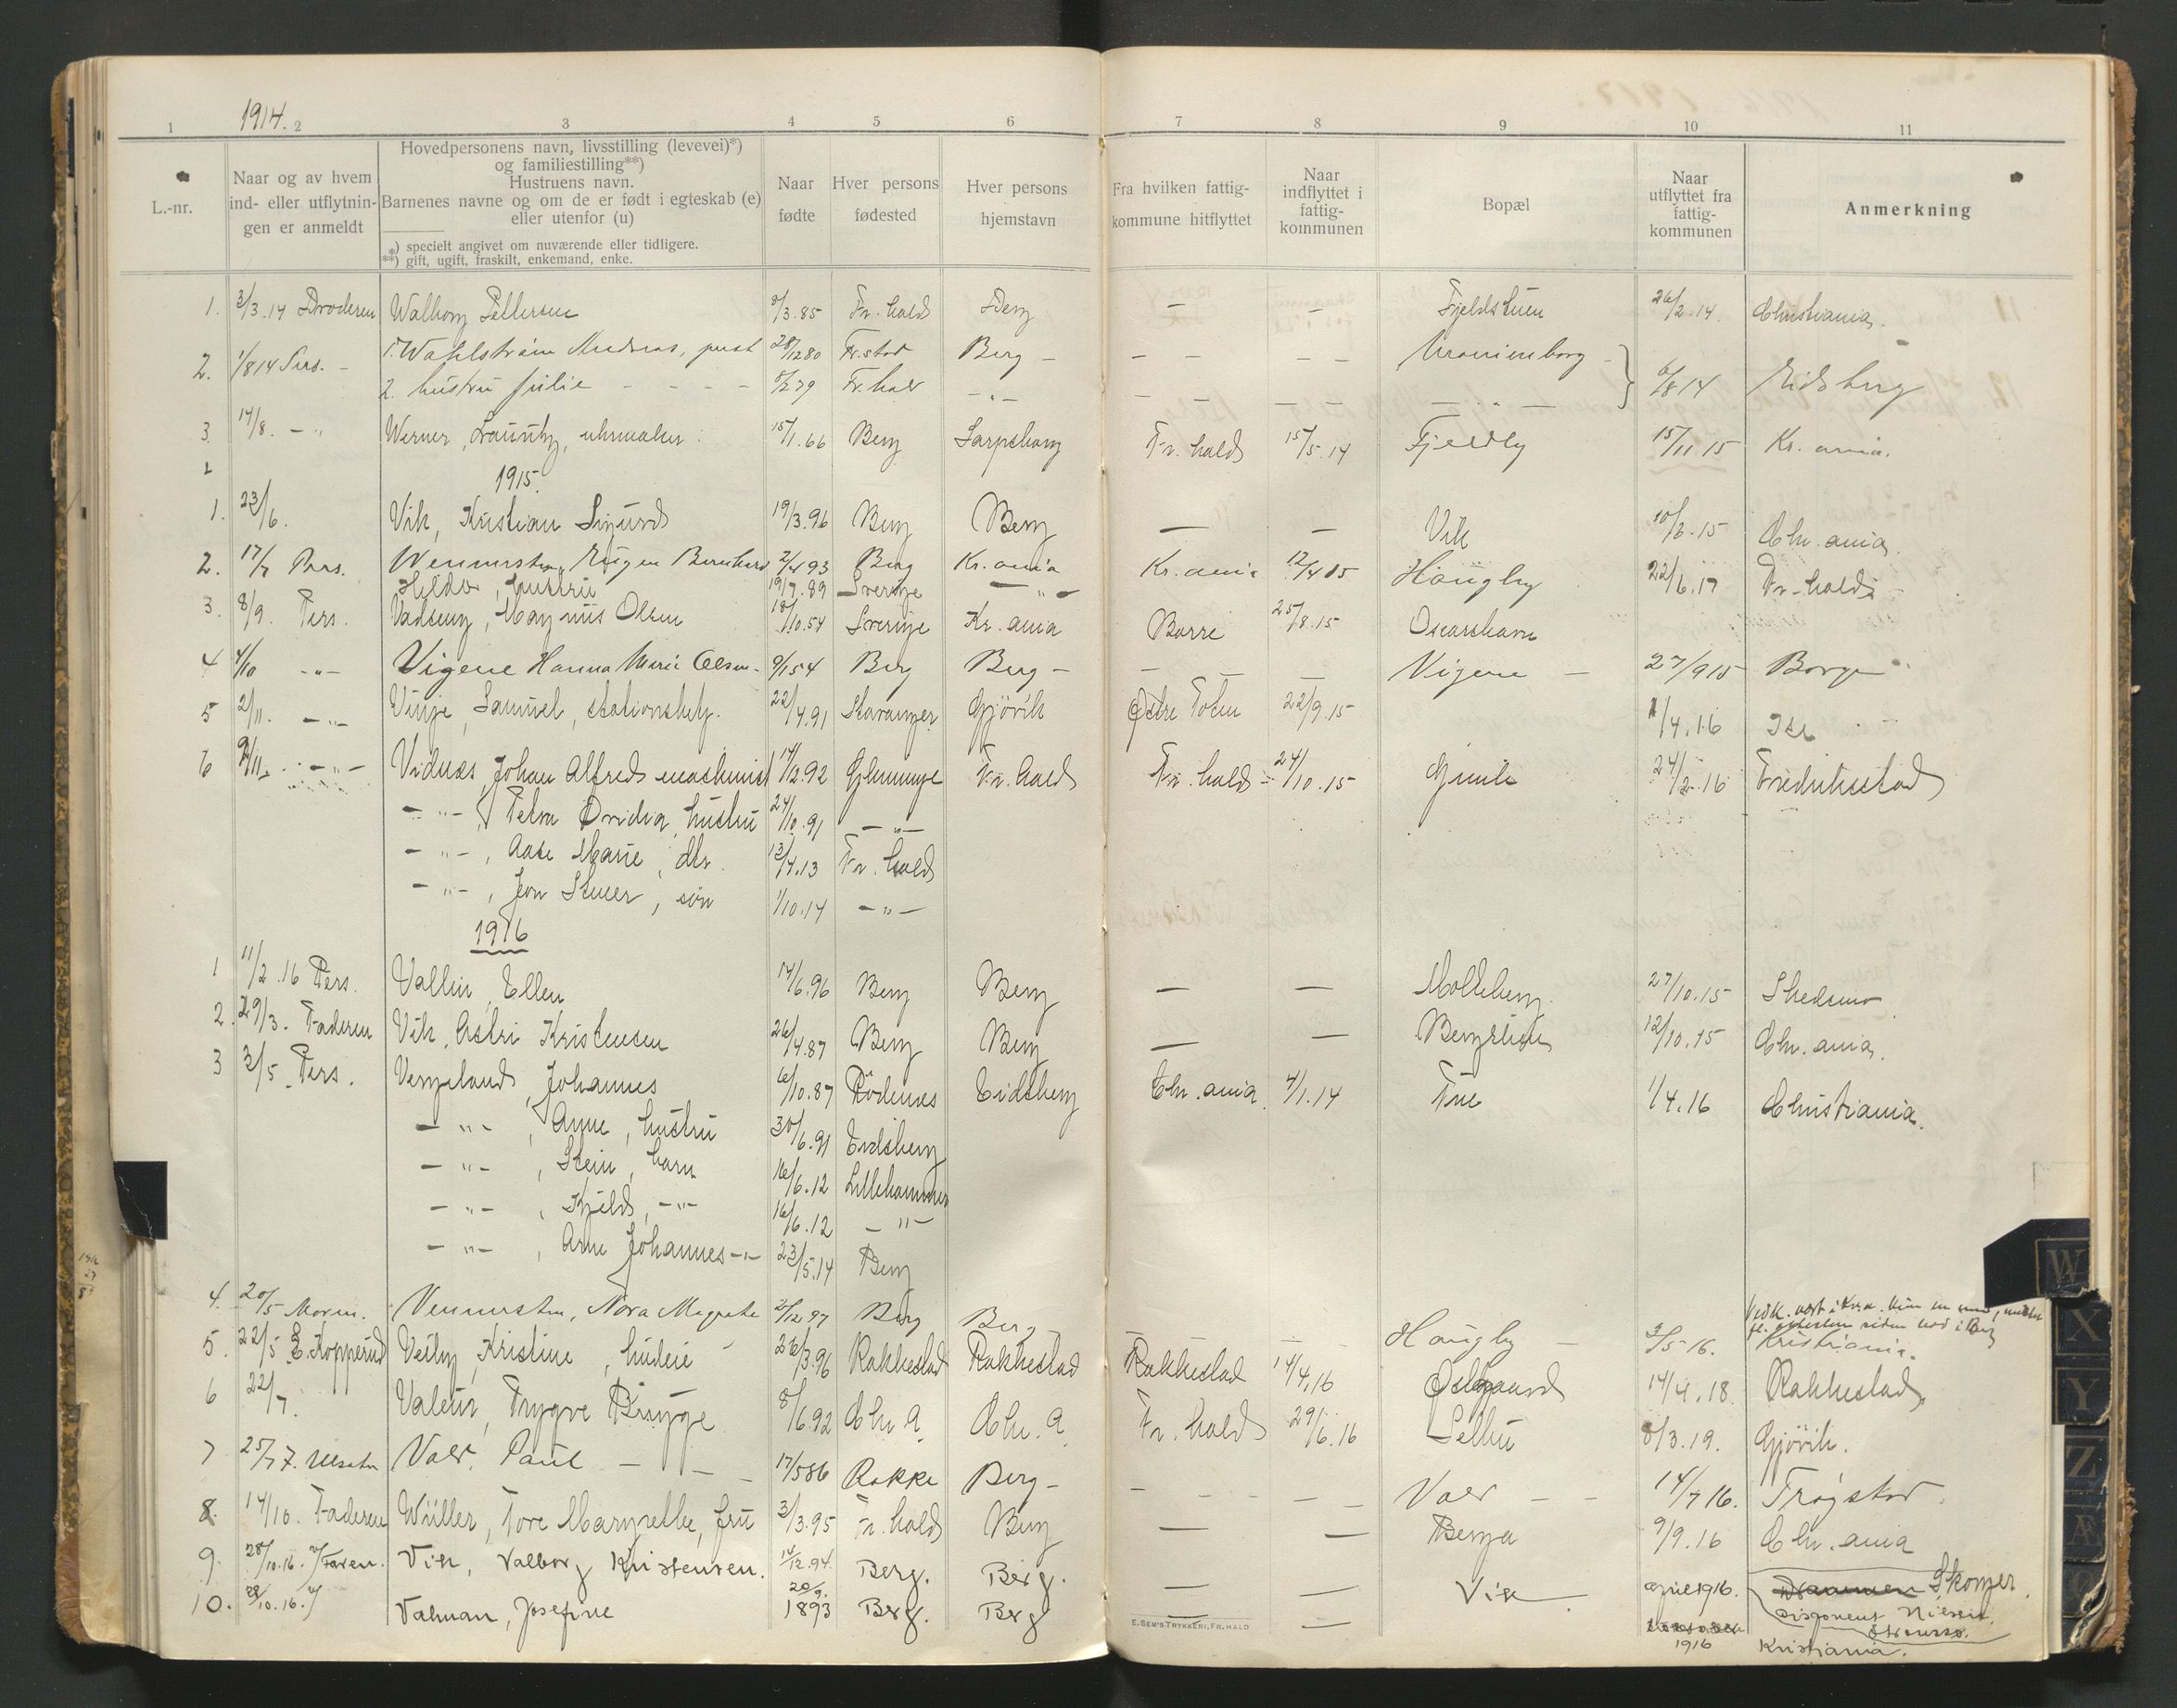 1914.
1 2 3 4 5 6 7 8 9 10 11
L.-nr.
Naar og av hvem
ind- eller utflytnin-
gen er anmeldt
Hovedpersonens navn, livsstilling (levevei)*)
og familiestilling**)
Hustruens navn.
Barnenes navne og om de er født i egteskab (e)
eller utenfor (u)
*) specielt angivet om nuværende eller tidligere.
**) gift, ugift, fraskilt, enkemand, enke.
Naar
fødte
Hver persons
fødested
Hver persons
hjemstavn
Fra hvilken fattig-
kommune hitflyttet
Naar
indflyttet i
fattig-
kommunen
Bopæl
Naar
utflyttet fra
fattig-
kommunen
Anmerkning
1. 3/3.14 Broderen Walborg Pettersen /3.85 Fr.hald Berg — — Fjeldstuen 26/2.14. Christiania.
2. 1/8 14 Pers. – 1. Wahlström Andreas, 28/12 80 Fr.stad Berg – – – – – Uranienborg –
2. hustru Julie – – – – /2 79 Fr.hald – " – – – – – – " – 6/8 14 Eidsberg
3. 14/8. – " Werner, Lauritz, uhrmaker. 15/1.66 Berg Sarpsborg Fr.hald 15/5.14 Fjeldly 15/11 15 Kr.ania.
1915.
1. 23/6. Vik, Kristian Sigurd 19/3.96 Berg Berg — — Vik 10/3.15 Chr.ania.
2. 17/7 Pers. Wennersten, Eugen Bernhard 2/4 93 Berg Kr.ania Kr.ania 12/4 15 Haugby 22/6.17 Fr.hald
Hilda, hustru 19/7.89 Sverige – " –
3. 8/9. Pers. Vadseng, Magnus Olsen 18/10.54 Sverige Kr.ania Borre 25/8.15 Oscarshavn
4 4/10 – " – Vigene Hanna Marie Olsen – 9/1 54 Berg Berg – — — Vigene – 27/9 15 Borge
5 2/11. – " – Vinje, Samuel, stationsbetj. 22/4.91 Stavanger Gjövik Østre Toten 22/9.15 1/4.16 Ise
6 9/11. – " – Vidnes, Johan Alfred maskinist 14/12.92 Glemminge Fr.hald Fr.hald 24/10.15 Gimle 24/2.16 Fredrikstad
– " –, Petra Ovidia, hustru 24/10.91 – " –
– " –, Aase Marie, dtr. 13/4.13 Fr.hald
– " –, Jon Stener, søn 1/10.14 – " –
1916
1 11/2.16 Pers. Vallin, Ellen 14/6.96 Berg Berg — — Molleberg 27/10.15 Skedsmo
2. 29/3. Faderen Vik, Astri Kristensen 26/4.87 Berg Berg — — Bergslien 12/10.15 Chr.ania.
3 3/5. Pers. Vergeland, Johannes 6/10.87 Rödenes Eidsberg Chr.ania. 4/1.14 1/4.16 Christiania.
– " –, Anne, hustru 30/6.91 Eidsberg
– " –, Stein, barn 16/6.12 Lillehammer
– " –, Kjeld, – " – 16/6.12 – " –
– " –, Arne Johannes – " – 23/5.14 Berg
4. 20/5 Moren. Vennersten, Nora Magrete 2/12 97 Berg Berg – — — Haugby – 3/5 16. Kristiania.
5. 22/5 E. Kopperud Veiby, Kristine, budeie 26/3.96 Rakkestad Rakkestad Rakkestad 14/4.16 Østgaard 14/4.18. Rakkestad.
6 22/7. Valeur, Trygve Brügge 8/6.92 Chr.a. Chr.a. Fr.hald 29/6.16 8/3.19. Gjövik.
7 25/7 Vold, Paul – – – 17/5 86 Rakke Berg – – – – – – Vold – – 14/7 16. Trøgstad.
8. 14/10. Faderen Wüller, Tore Margrethe, fru 3/3.95 Fr.hald Berg — — Berga 9/9.16 Chr.ania
9. 28/10.16. Faren. Vik, Valborg Kristensen. 14/12.94. Berg. Berg. — — Vik. april 1916. Skonjer.
Disponent Nielsen
10. 28/10.16. Valman, Josefine 20/9. 1893 Berg. Berg — — 1916 Kristiania.
E. SEM'S TRYKKERI, FR.HALD
W
X
Y
Z
Æ